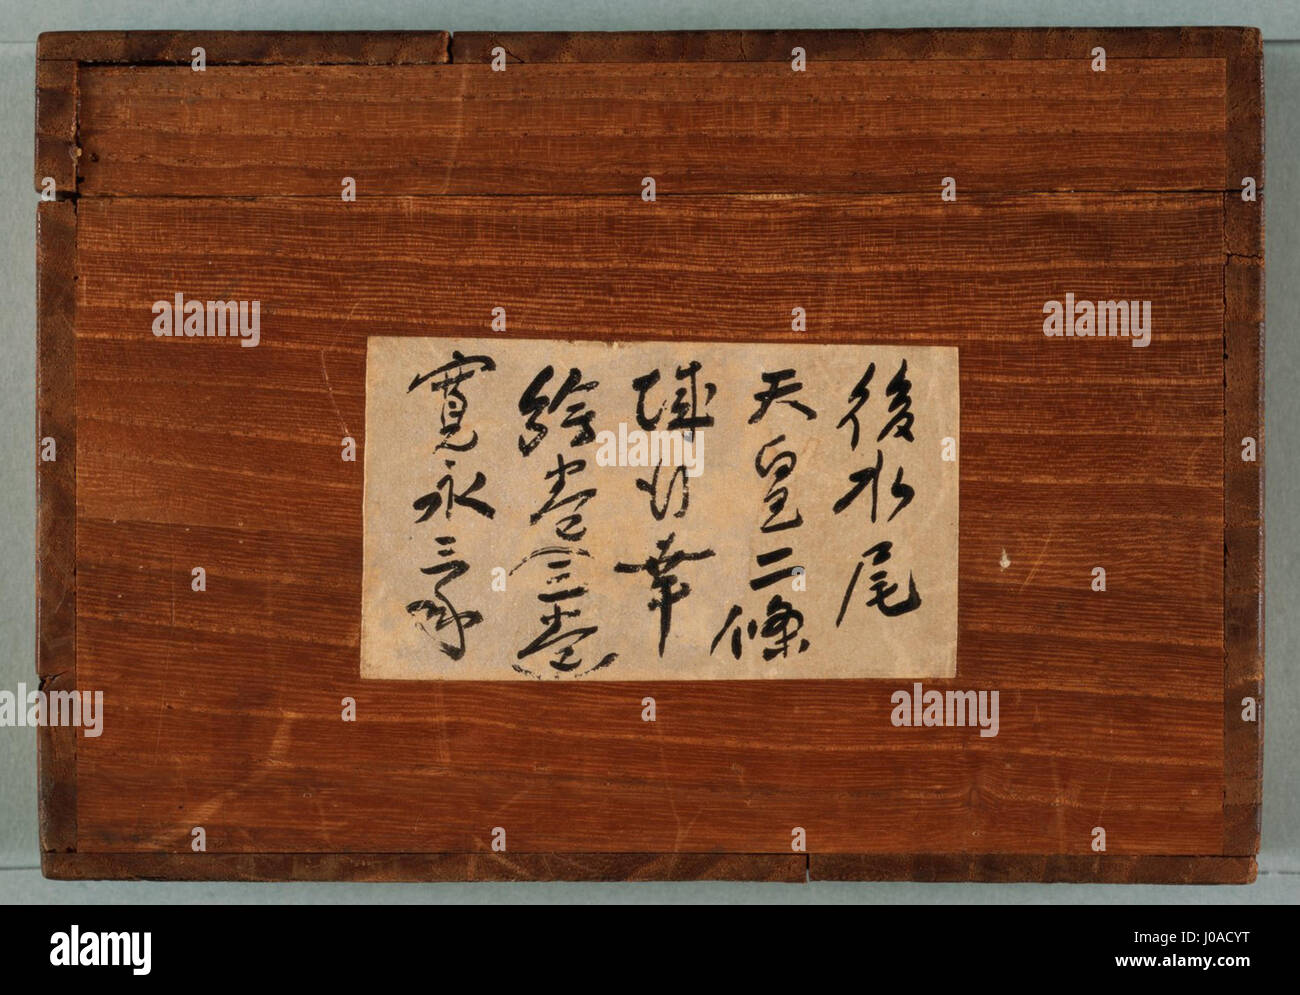 後水尾
天皇二條
城行幸
絵巻(三巻)
寛永三年
alamy
Image ID: J0ACYT
www.alamy.com